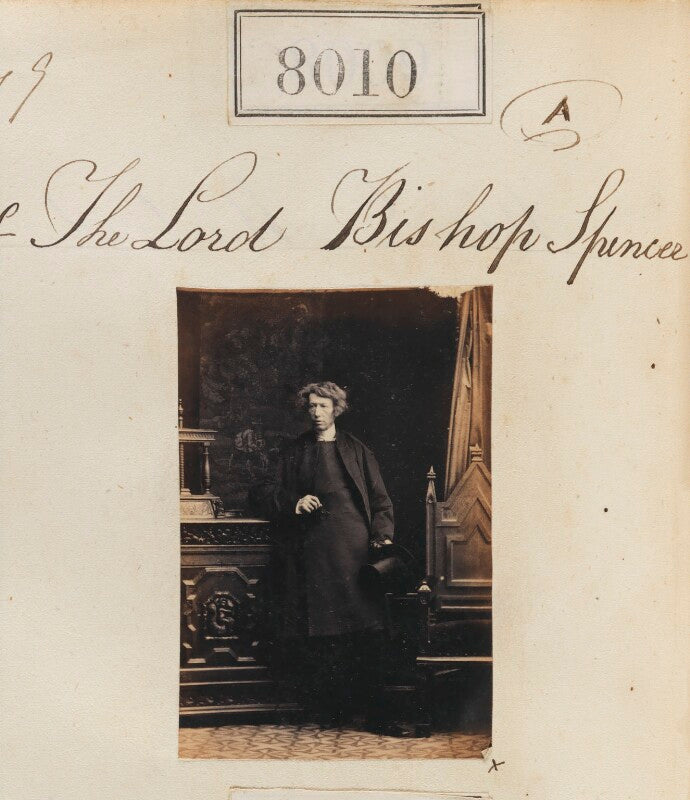 8010
A
The Lord Bishop Spencer
x